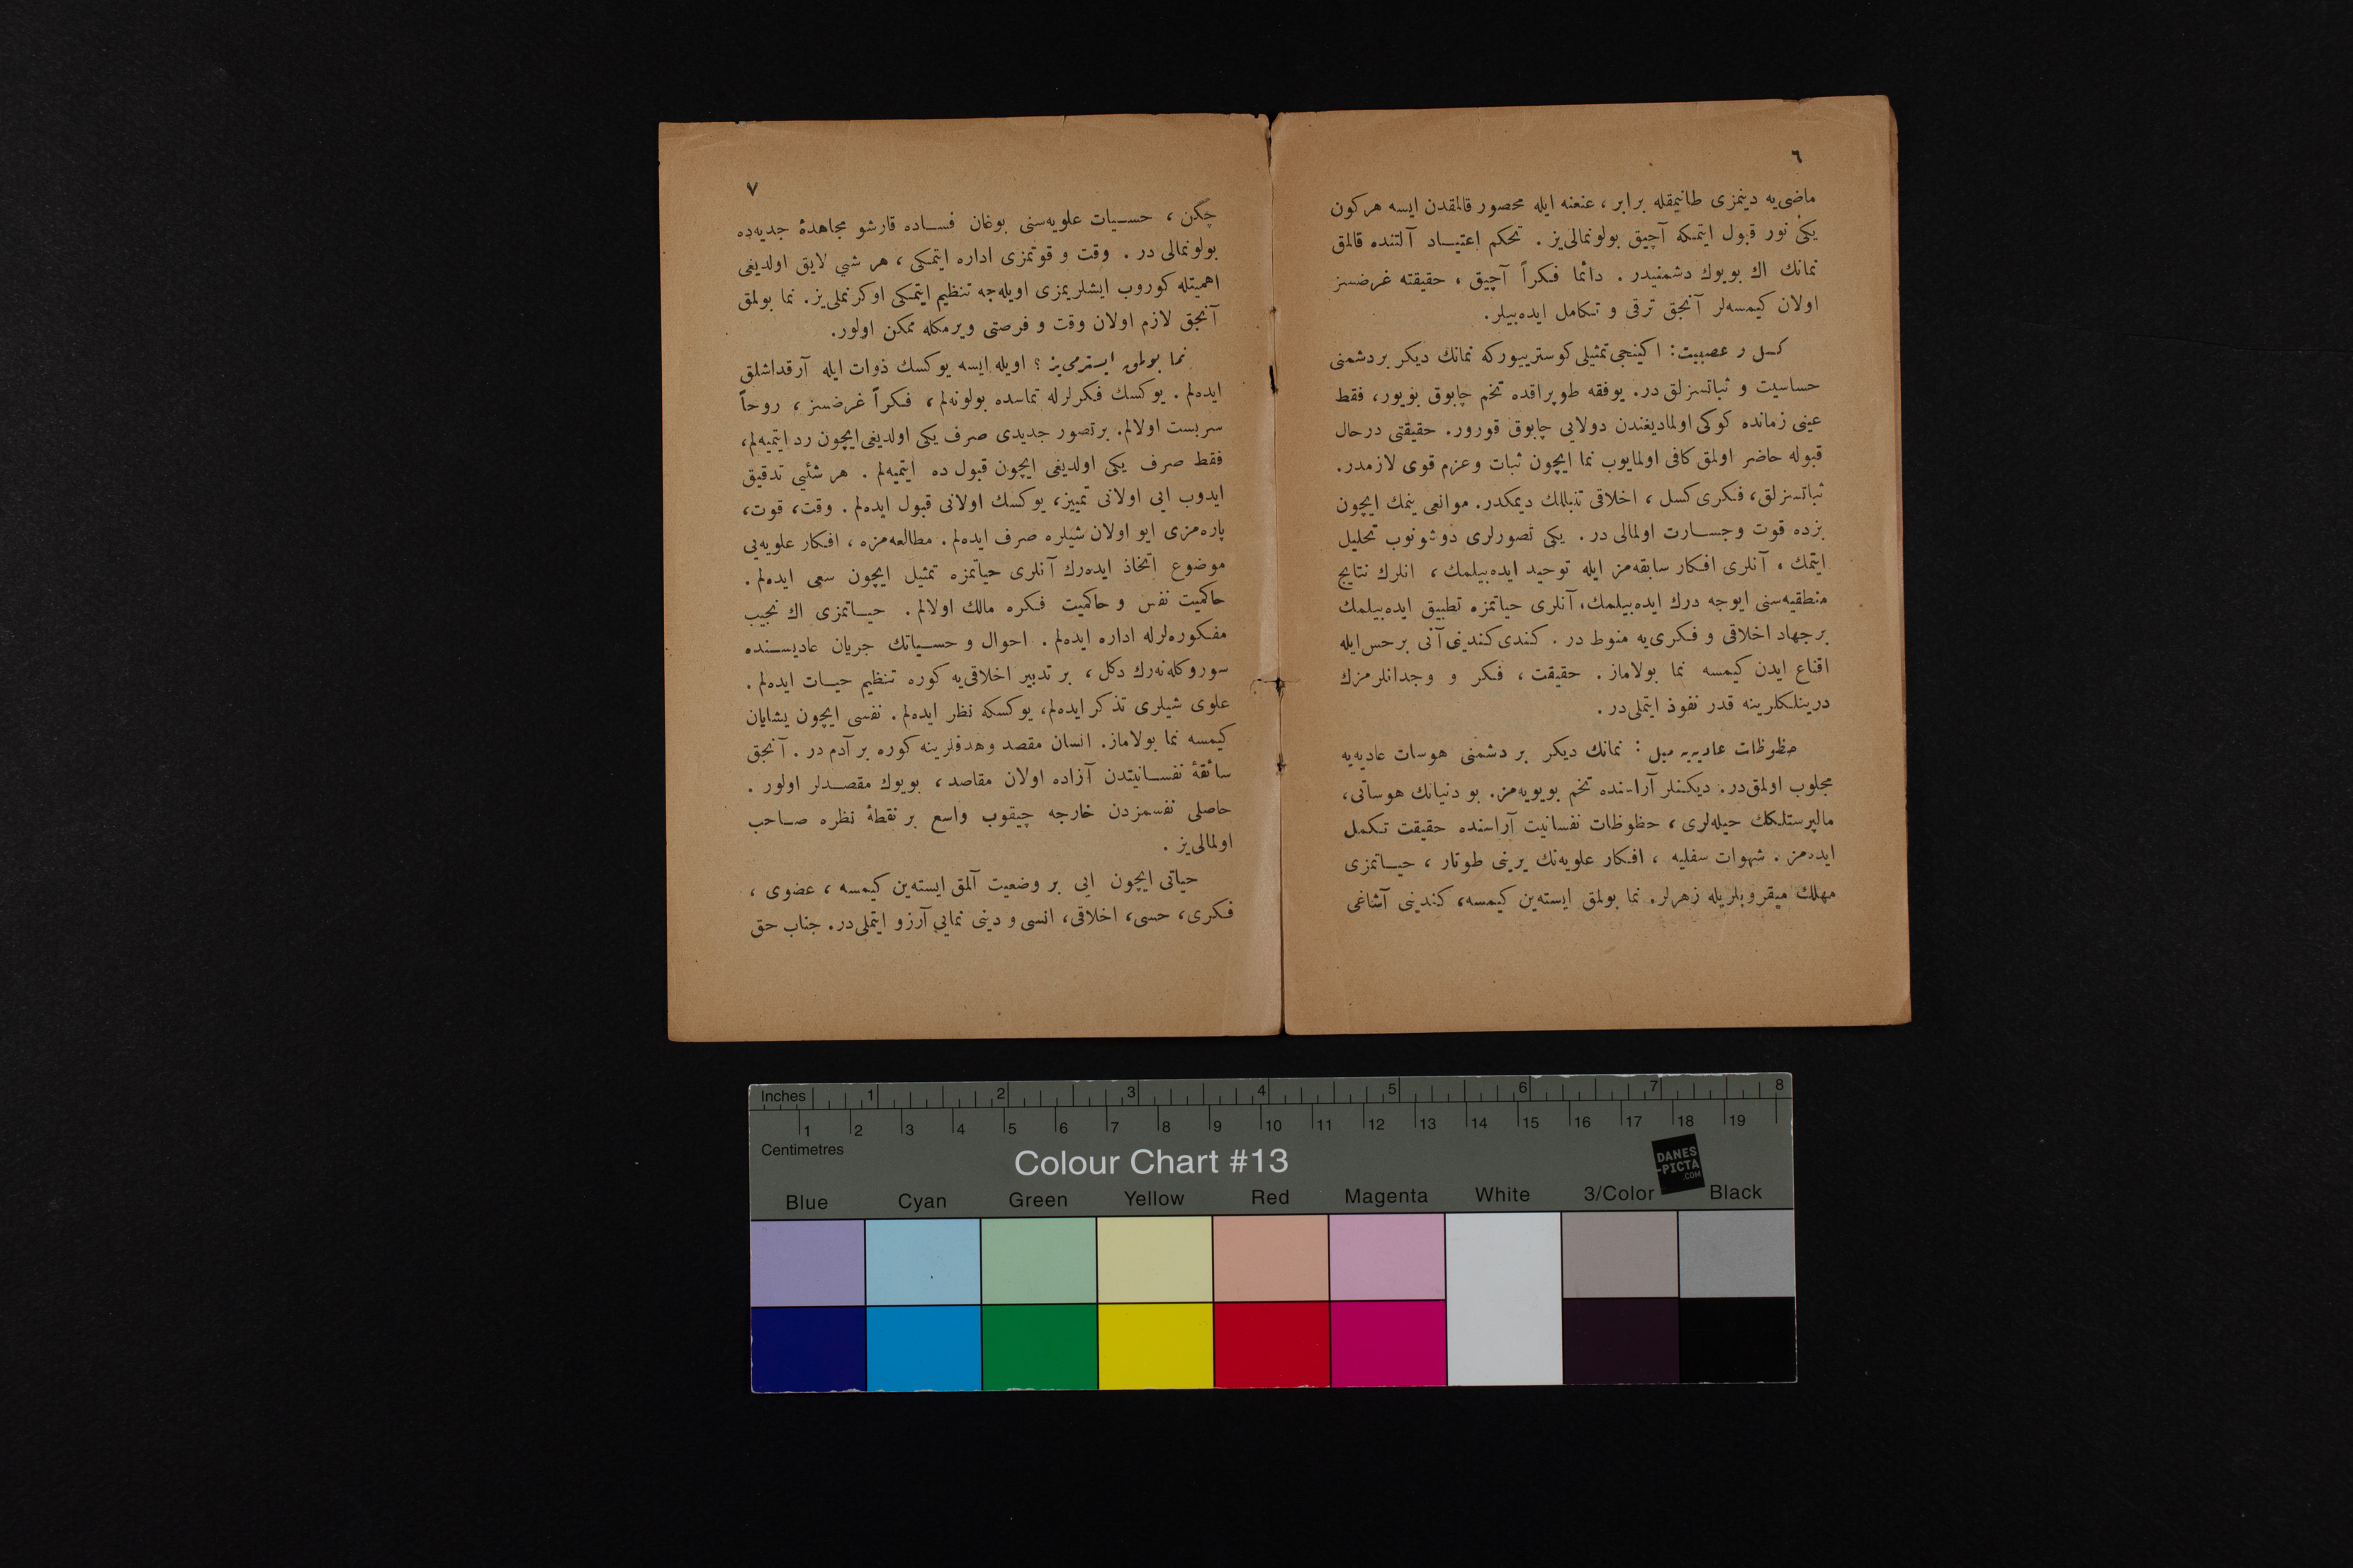 ٦
ماضی‌یه دینمزی طانیمقله برابر، عنعنه ایله محصور قالمقدن ایسه هرکون
یکی نور قبول ایتمکه آچیق بولونمالی‌یز . تحکم اعتیاد آلتنده قالمق
نمانك اك بویوك دشمنیدر . دائما فکراً آچیق ، حقیقته غرضسز
اولان کیمسه‌لر آنجق ترقی و تکامل ایده‌بیلر.
کسل و عصبیت: ایکینجی تمثیلی کوستریورکه نمانك دیکر بردشمنی
حساسیت و ثباتسزلق در. یوفقه طوپراقده تخم چابوق بویور، فقط
عینی زمانده کوکی اولمادیغندن دولایی چابوق قورور. حقیقتی درحال
قبوله حاضر اولمق کافی اولمایوب نما ایچون ثبات و عزم قوی لازمدر.
ثباتسزلق، فکری کسل ، اخلاقی تنبللك دیمکدر. موانعی ینمك ایچون
بزده قوت وجسارت اولمالی در . یکی تصورلری دوشونوب تحلیل
ایتمك ، آنلری افکار سابقه‌مز ایله توحید ایده‌بیلمك ، انلرك نتایج
منطقیه‌سنی ایوجه درك ایده‌بیلمك، آنلری حیاتمزه تطبیق ایده‌بیلمك
برجهاد اخلاقی و فکری‌یه منوط در . کندی کندینی آنی برحس ایله
اقناع ایدن کیمسه نما بولاماز . حقیقت ، فکر و وجدانلرمزك
درینلکلرینه قدر نفوذ ایتملی‌در .
حظوظات عادیه‌یه میل : نمانك دیکر بر دشمنی هوسات عادیه‌یه
مجلوب اولمق‌در. دیکنلر آراسنده تخم بویویه‌مز. بو دنیانك هوساتی،
مالپرستلکك حیله‌لری ، حظوظات نفسانیت آراسنده حقیقت تکمل
ایده‌مز . شهوات سفلیه ، افکار علویه‌نك یرینی طوتار ، حیاتمزی
مهلك میقروبلریله زهرلر. نما بولمق ایسته‌ین کیمسه، کندینی آشاغی
٧
چکن ، حسیات علویه‌سنی بوغان فساده قارشو مجاهدهٔ جدیه‌ده
بولونمالی در . وقت و قوتمزی اداره ایتمکی ، هر شی لایق اولدیغی
اهمیتله کوروب ایشلریمزی اویله‌جه تنظیم ایتمکی اوکرنملی‌یز. نما بولمق
آنجق لازم اولان وقت و فرصتی ویرمکله ممکن اولور.
نما بولمق ایسترمی‌یز ؟ اویله ایسه یوکسك ذوات ایله آرقداشلق
ایده‌لم . یوکسك فکرلرله تماسده بولونه‌لم ، فکراً غرضسز ، روحاً
سربست اولالم. برتصور جدیدی صرف یکی اولدیغی‌ایچون رد ایتمیه‌لم،
فقط صرف یکی اولدیغی ایچون قبول ده ایتمیه‌لم . هر شئیی تدقیق
ایدوب ایی اولانی تمییز، یوکسك اولانی قبول ایده‌لم . وقت، قوت،
پاره‌مزی ایو اولان شیلره صرف ایده‌لم . مطالعه‌مزه ، افکار علویه‌یی
موضوع اتخاذ ایده‌رك آنلری حیاتمزه تمثیل ایچون سعی ایده‌لم .
حاکمیت نفس و حاکمیت فکره مالك اولالم . حیاتمزی اك نجیب
مفکوره‌لرله اداره ایده‌لم . احوال و حسیاتك جریان عادیسنده
سوروکله‌نه‌رك دکل ، بر تدبیر اخلاقی‌یه کوره تنظیم حیات ایده‌لم .
علوی شیلری تذکر ایده‌لم، یوکسکه نظر ایده‌لم . نفسی ایچون یشایان
کیمسه نما بولاماز. انسان مقصد وهدفلرینه کوره بر آدم در . آنجق
سائقهٔ نفسانیتدن آزاده اولان مقاصد ، بویوك مقصدلر اولور .
حاصلی نفسمزدن خارجه چیقوب واسع بر نقطهٔ نظره صاحب
اولمالی‌یز .
حیاتی ایچون ایی بر وضعیت آلمق ایسته‌ین کیمسه ، عضوی ،
فکری، حسی، اخلاقی، انسی و دینی نمایی آرزو ایتملی‌در. جناب حق
Inches 1 2 3 4 5 6 7 8
1 2 3 4 5 6 7 8 9 10 11 12 13 14 15 16 17 18 19
Centimetres
Colour Chart #13
DANES
-PICTA
.COM
Blue Cyan Green Yellow Red Magenta White 3/Color Black